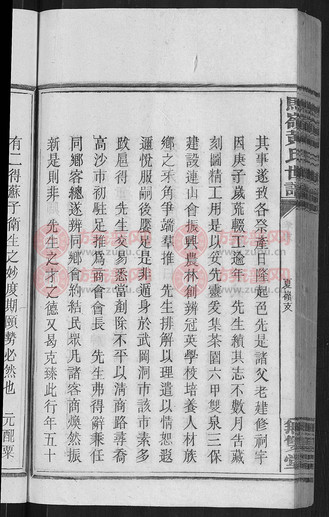 馬嶺黃氏世譜
夏嶺支
無雙堂
其事遂致各祭產日隆起色先是諸父老建修祠宇
因庚子歲荒輟工逾年　先生續其志不數月告蕆
刻圖精工用是以篤先靈愛集茶園六甲雙泉三保
建設連山會振興農林創辦冠英學校培養人材族
鄉之呆角爭端羣推　先生排解以理遣以情恕遐
邇悅服嗣後屢足是非遁身於武岡洞市該市素多
跛屁得　先生交易悉當剷除不平以清商路尋喬
高沙市初駐足推為商會會長　先生弗得辭兼任
同鄉客總遂辨同鄉會約結民眾凡諸客商煥然振
新是則非　先生之才之德又易克臻此行年五十
有二得蘇子衛生之妙度期頤勢必然也　元配粟